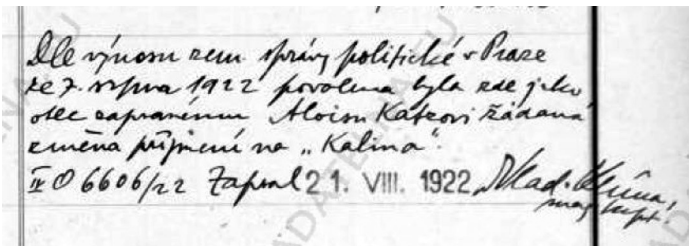 Dle výnosu zem. správy politické v Praze
ze 7. srpna 1922 povolena byla zde jako
otec zapsanému Aloisu Katzovi žádaná
změna příjmení na „Kalina“.
6606/22 Zapsal 21. VIII. 1922 Vlad.